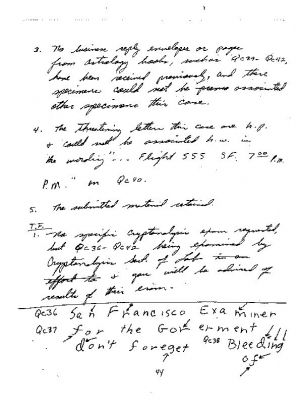 3. No business reply envelopes or pages
from astrology books, such as Qc39-Qc42,
have been received previously, and these
specimens could not be assoc associated
other specimens this case.
4. The threatening letters this case are h.p.
& could not be associated h.w. in
the wording "... Flight 555 SF. 7 00 P.M.
P.M." on Qc40.
5. The submitted material retained.
T.E.
1. No specific Cryptanalysis exam requested,
but Qc36-Qc42 being examined by
Cryptanalysis Sect. of Lab in an
effort to & you will be advised of
results of this exam.
Qc36 San Francisco Examiner
Qc37 for the Goverment
don't foreget Qc38 Bleeding
of
44